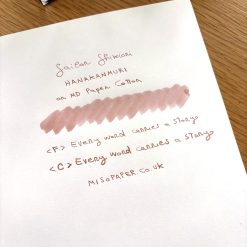 Sailor Shikiori
HANAKANMURI
on MD Paper Cotton
<F> Every word carries a story
<C> Every word carries a story
MISOPAPER.CO.UK